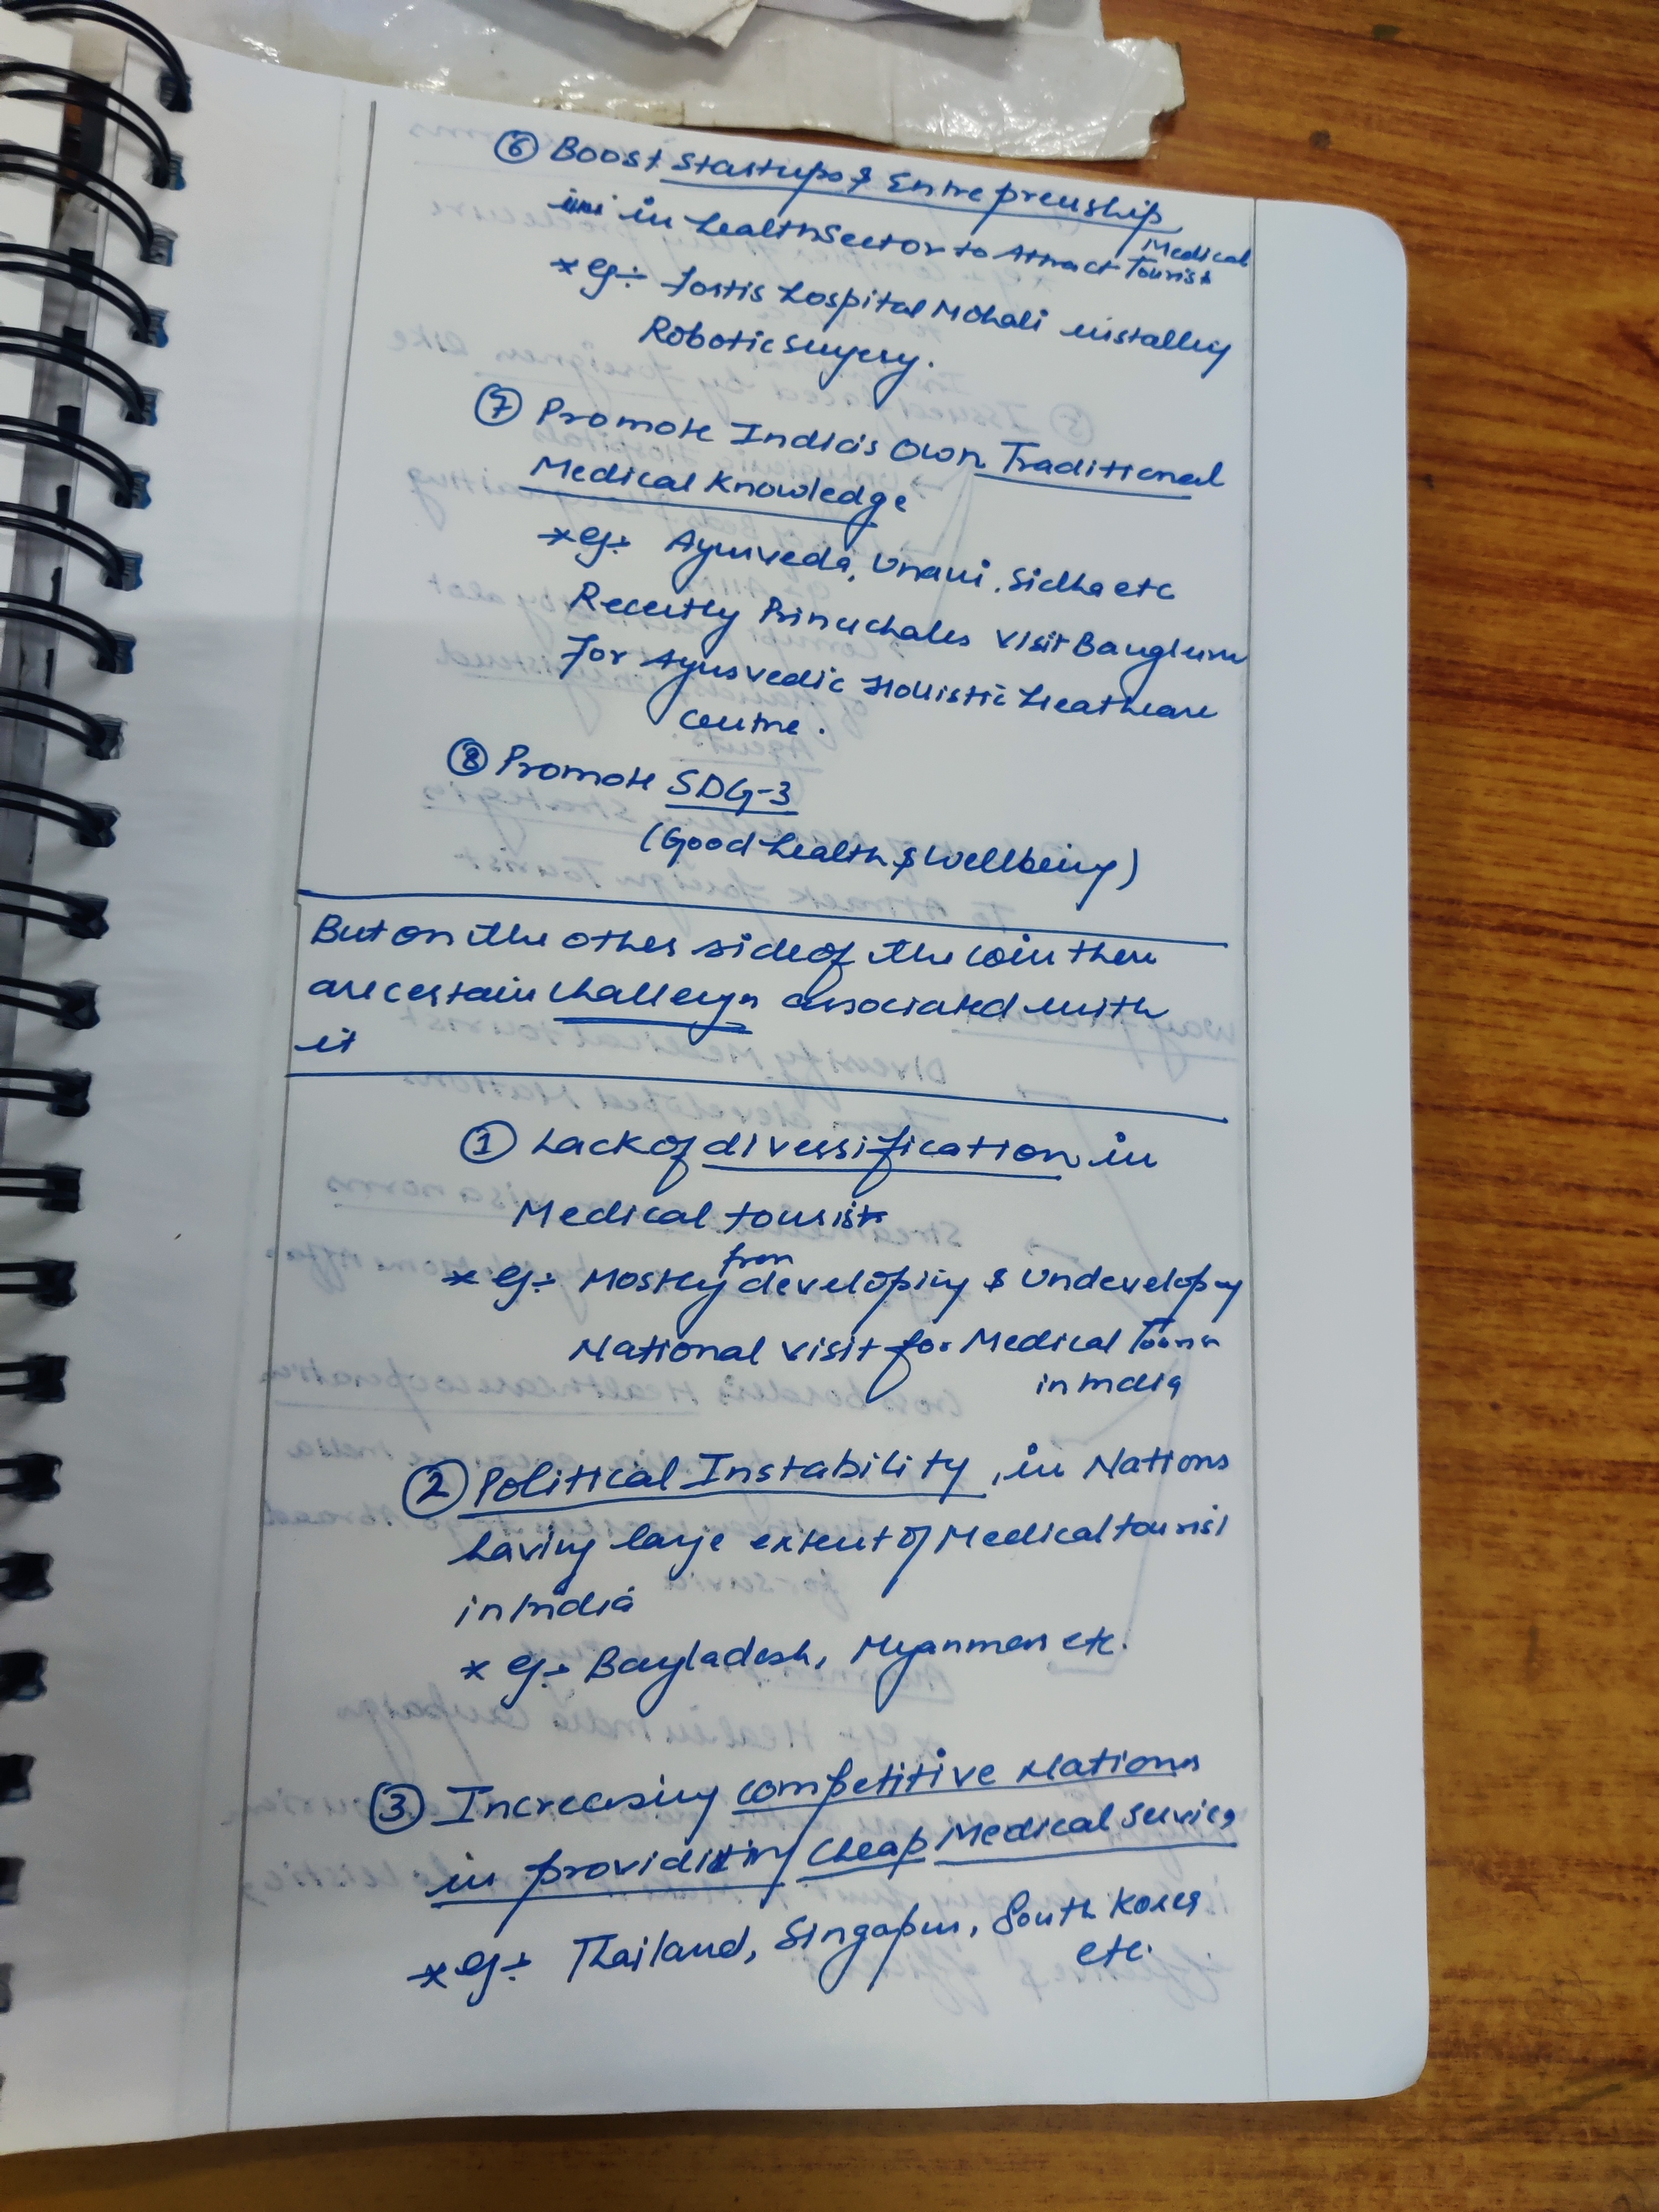 ⑥ Boost Startups & Entreprenship
in health Sector to Attract Medical Tourist
* eg:- Fortis hospital Mohali installing
Robotic surgery.
⑦ Promote India's Own Traditional
Medical Knowledge
* eg:- Ayurveda, Unani, Sidha etc
Recently Prince Charles visit Banglure
For Ayurvedic Holistic Heathcare
Centre.
⑧ Promote SDG-3
(Good health & Wellbeing)
But on the other side of the coin there
are certain challenges associated with
it
① Lack of diversification in
Medical tourist
* eg:- Mostly from developing & Undeveloping
National visit for Medical Tourism
in India
② Political Instability, in Nations
having large extent of Medical tourist
in India
* eg:- Bangladesh, Myanmar etc.
③ Increasing competitive Nations
in providing Cheap Medical Services
* eg:- Thailand, Singapur, South Korea
etc.